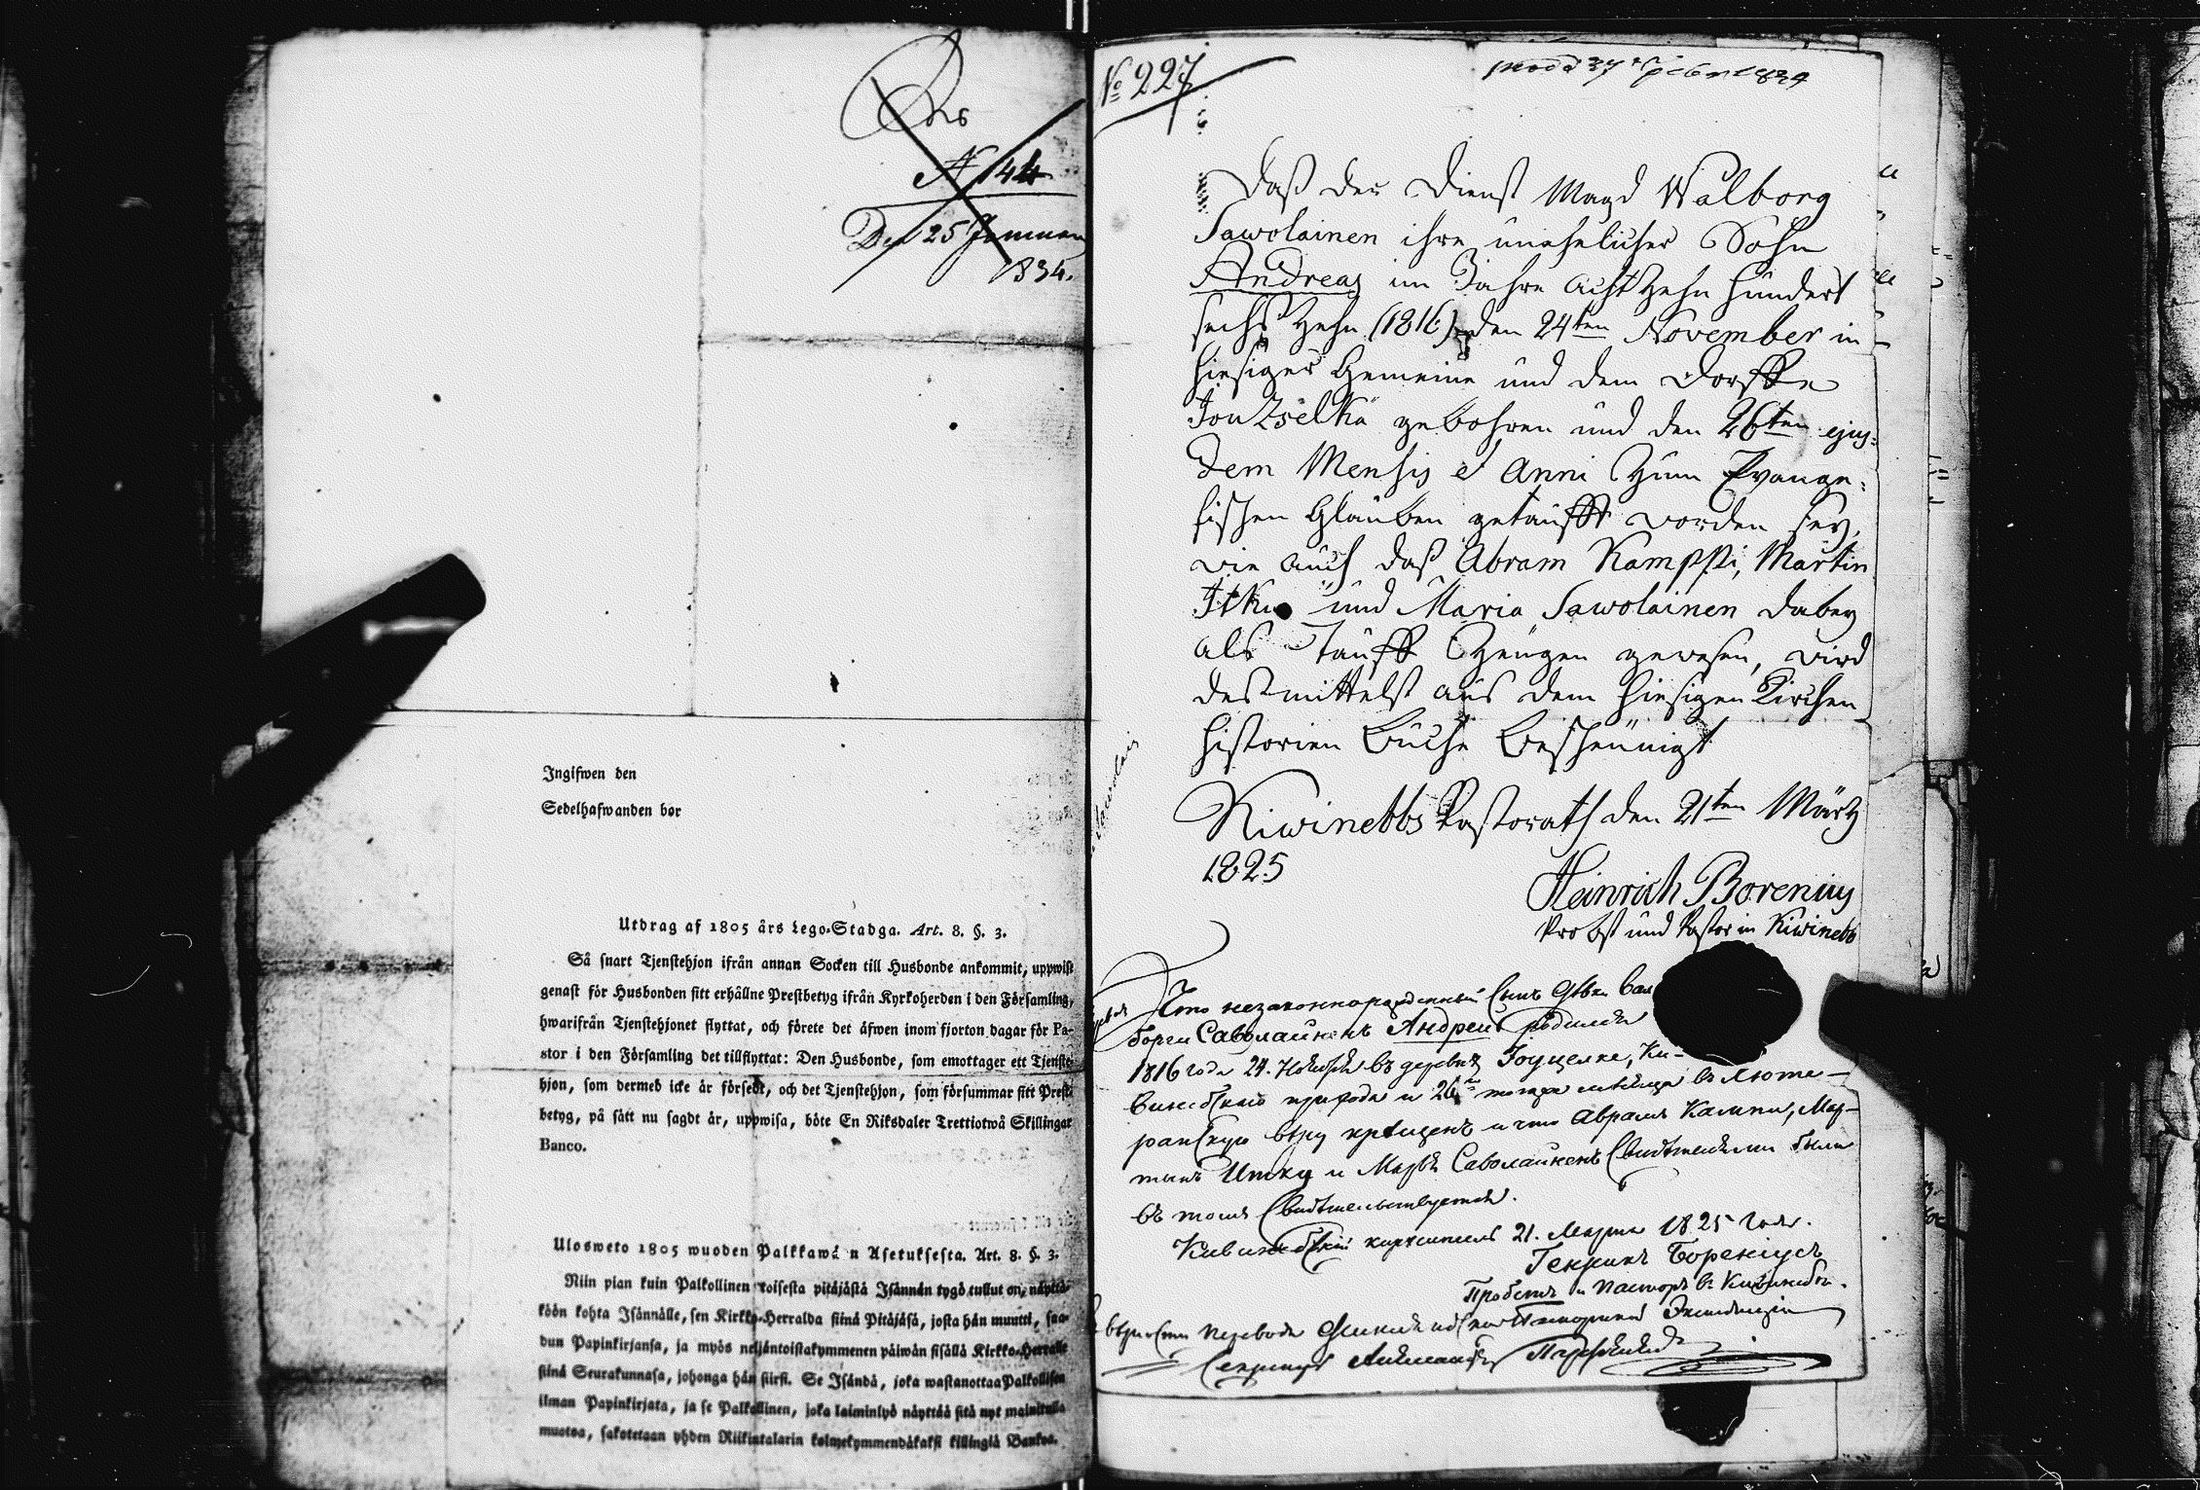 N 144
Den 25 Januari
1834.
Ingifwen den
Sedelhafwanden bor
Utdrag af 1805 års Lego-Stadga. Art. 8. §. 3.
Så snart Tjenstehjon ifrån annan Socken till Husbonde ankommit, uppwise
genast för Husbonden sitt erhållne Prestbetyg ifrån Kyrkoherden i den Församling,
hwarifrån Tjenstehjonet flyttat, och förete det äfwen inom fjorton dagar för Pa-
stor i den Församling det tillflyttat: Den Husbonde, som emottager ett Tjenste-
hjon, som dermed icke är försedt, och det Tjenstehjon, som försummar sitt Prest-
betyg, på sätt nu sagdt är, uppwisa, böte En Riksdaler Trettiotwå Skillingar
Banco.
Ulosweto 1805 wuoden Palkkawä n Asetuksesta. Art. 8. §. 3.
Niin pian kuin Palkollinen toisesta pitäjästä Isännän tygö tullut on, näyttä-
köön kohta Isännälle, sen Kirkko-Herralda siinä Pitäjäsä, josta hän muutti, saa-
dun Papinkirjansa, ja myös neljäntoistakymmenen päiwän sisällä Kirkko-Herralle
siinä Seurakunnasa, johonga hän siirsi. Se Isändä, joka wastanottaa Palkollisen
ilman Papinkirjata, ja se Palkollinen, joka laiminlyö näyttää sitä nyt mainitulla
muotoa, sakotetaan yhden Riikintalarin kolmekymmendäkaksi killingiä Bankoa.
№ 227
Daß der Dienst Magd Walborg
Sawolainen ihre unehelicher Sohn
Andreas im Jahre Acht zehn hundert
sechs zehn (1816) den 24ten November in
hiesiger Gemeine und dem Dorffe
Jouzselkä gebohren und den 26ten ejus=
dem Mensis et Anni zum Evange=
lischen Glauben getaufft worden sey,
wie auch daß Abram Kamppi, Martin
Itku und Maria Sawolainen dabey
als Tauff Zeugen gewesen, wird
desmittelst aus dem hiesigen Kirchen
historien Buche bescheinigt
Kiwinebbs Pastorath den 21ten Märtz
1825
Heinrich Borenius
Probst und Pastor in Kiwinebb
Что незаконнорожденный сынъ дѣвки Вал
борги Саволайненъ Андрей родился
1816 года 24. Ноября въ деревнѣ Іоуцелке, Ки-
винебскаго прихода и 26го тогоже мѣсяца въ Люте-
ранскую вѣру крещенъ и что Абрамъ Кампи, Мар-
тынъ Итку и Марья Саволайненъ свидѣтелями были
въ томъ свидѣтельствуется.
Кивинебскій кирхшпиль 21. Марта 1825 года.
Генрихъ Бореніусъ
Пробстъ и Пасторъ въ Кивинебѣ.